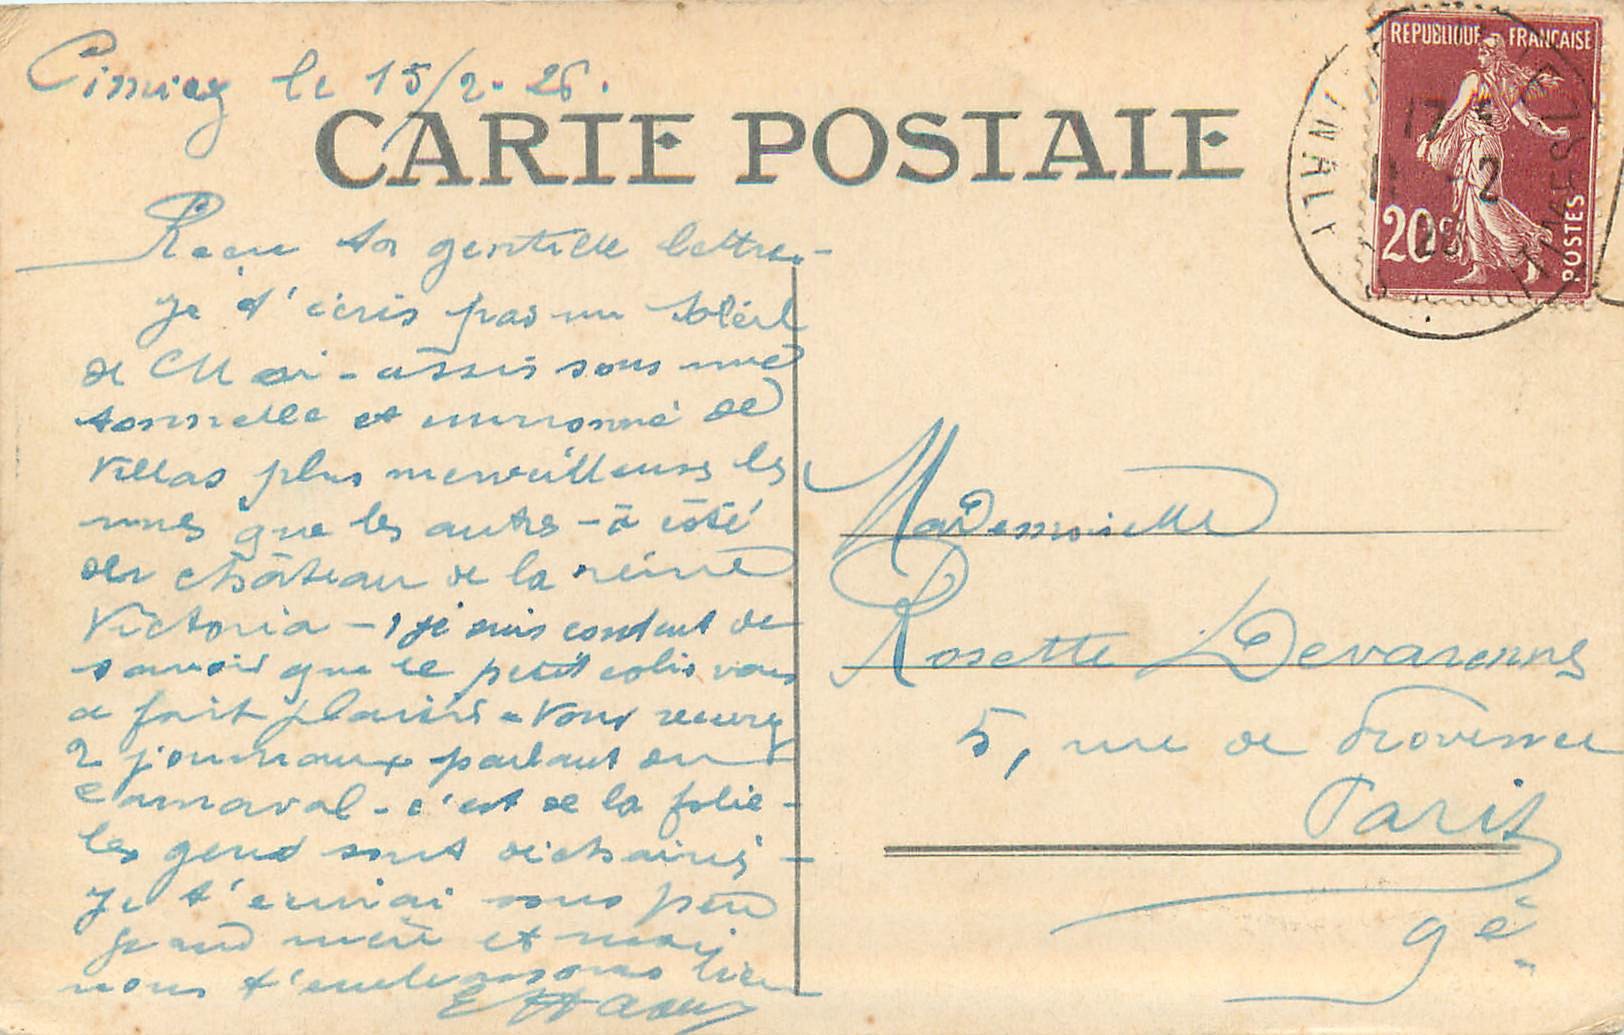 Cimiez le 15/2. 26.
CARTE POSTALE
REPUBLIQUE FRANÇAISE
20
POSTES
Reçu ta gentille lettre -
je t'écris par un soleil
de Mai - assis sous une
tonnelle et environné de
villas plus merveilleuses les
unes que les autres - à côté
du château de la reine
Victoria - je suis content de
savoir que le petit colis vous
a fait plaisir - Vous recevrez
2 journaux parlant du
Carnaval - c'est de la folie -
les gens sont déchainés -
Je t'écrirai sous peu
grand mère et moi
nous t'embrassons bien
Mademoiselle
Rosette Devarenne
5, rue de Provence
Paris
9è